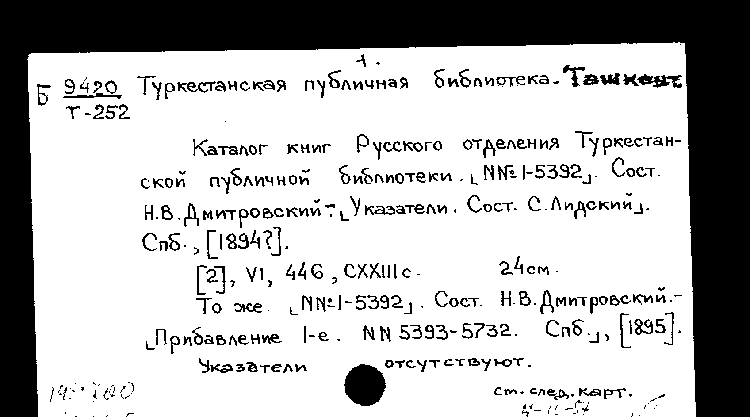 1.
Б 9420 Туркестанская публичная библиотека. Ташкент
Т-252
Каталог книг Русского отделения Туркестан-
ской публичной библиотеки. ⌞NN№ 1-5392⌟. Сост.
Н.В.Дмитровский-⌞Указатели. Сост. С.Лидский⌟.
Спб., [1894?].
[2], VI, 446, CXXIII с. 24см.
То же. ⌞NN№ 1-5392⌟. Сост. Н.В.Дмитровский.-
⌞Прибавление I-е. NN 5393-5732. Спб.⌟, [1895].
Указатели отсутствуют.
см. след. карт.